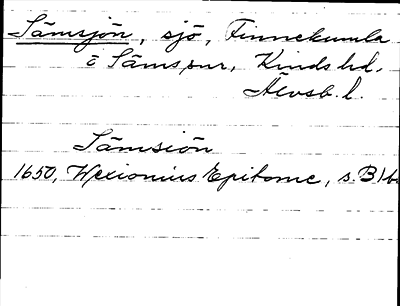 Sämsjön, sjö, Finnekumla
o Säms snr, Kinds hd.
Älvsb. l.
Sämsiön
1650, Wexionius Epitome, s. B 1 b.